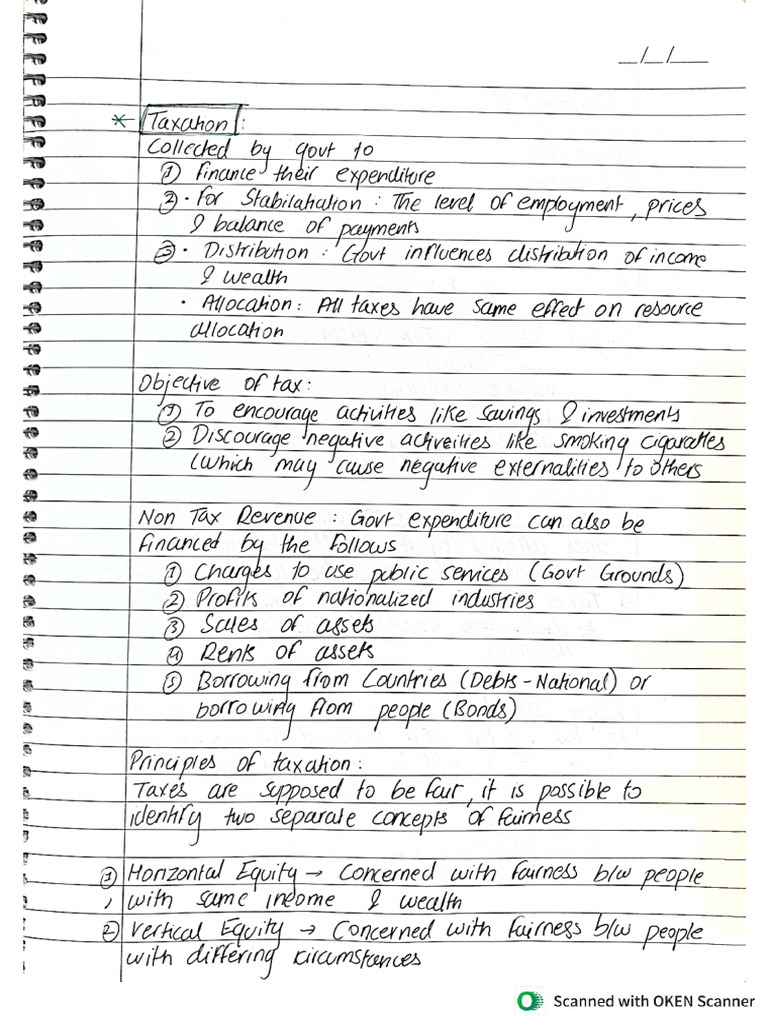 _/_/__
* Taxation:
Collected by govt to
① finance their expenditure
2) • For Stabilahation : The level of employment, prices
& balance of payments
③ • Distribution : Govt influences distribution of income
& wealth
• Allocation: All taxes have same effect on resource
allocation
Objective of tax:
① To encourage activities like savings & investments
② Discourage negative activeities like smoking cigarattes
(which may cause negative externalities to others
Non Tax Revenue : Govt expenditure can also be
financed by the follows
① Charges to use public services (Govt Grounds)
② Profits of nationalized industries
③ Sales of assets
④ Rents of assets
⑤ Borrowing from Countries (Debts - National) or
borrowing from people (Bonds)
Principles of taxation:
Taxes are supposed to be fair, it is possible to
identify two separate concepts of fairness
① Horizontal Equity → Concerned with fairness b/w people
, with same income & wealth
② Vertical Equity → Concerned with fairness b/w people
with differing circumstances
Scanned with OKEN Scanner